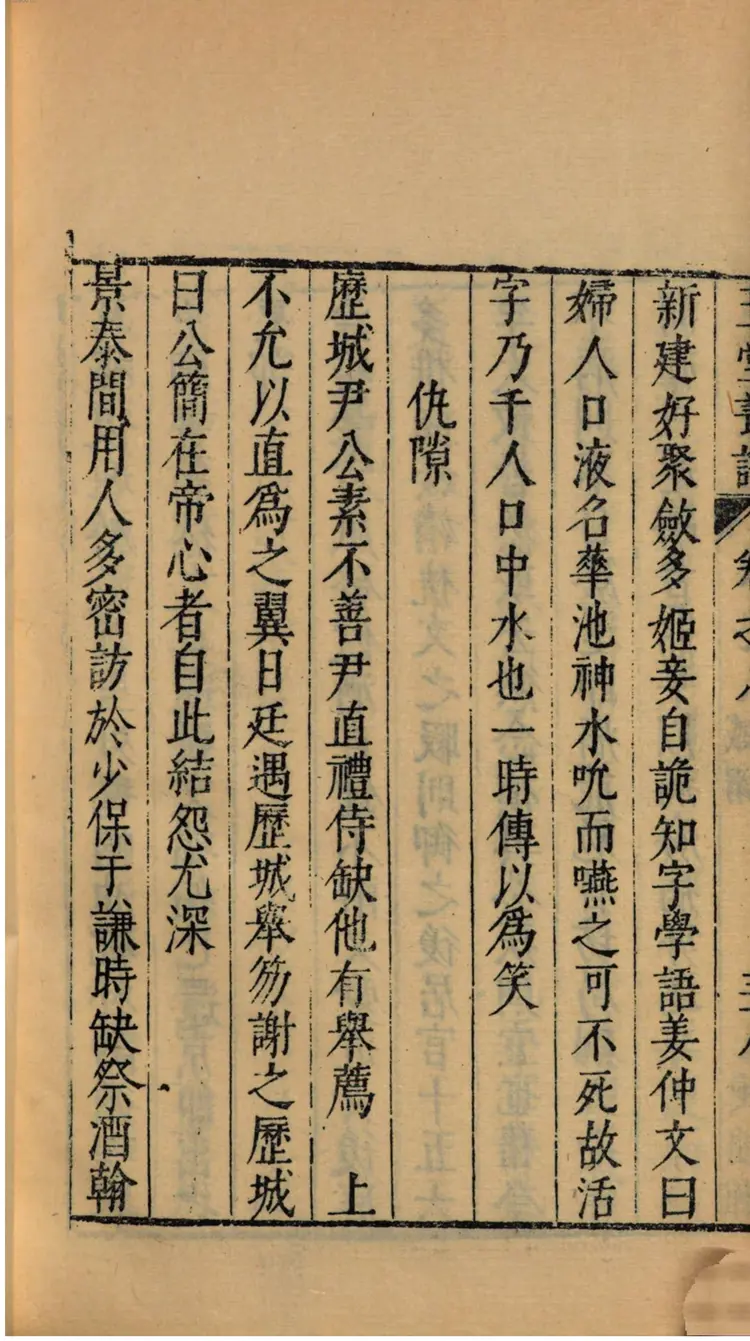 新建好聚斂多姬妾自詭知字學語姜仲文曰
婦人口液名華池神水吮而嚥之可不死故活
字乃千人口中水也一時傳以爲笑
仇隙
歷城尹公素不善尹直禮侍缺他有舉薦 上
不允以直爲之翼日廷遇歷城舉笏謝之歷城
曰公簡在帝心者自此結怨尤深
景泰間用人多密訪於少保于謙時缺祭酒翰